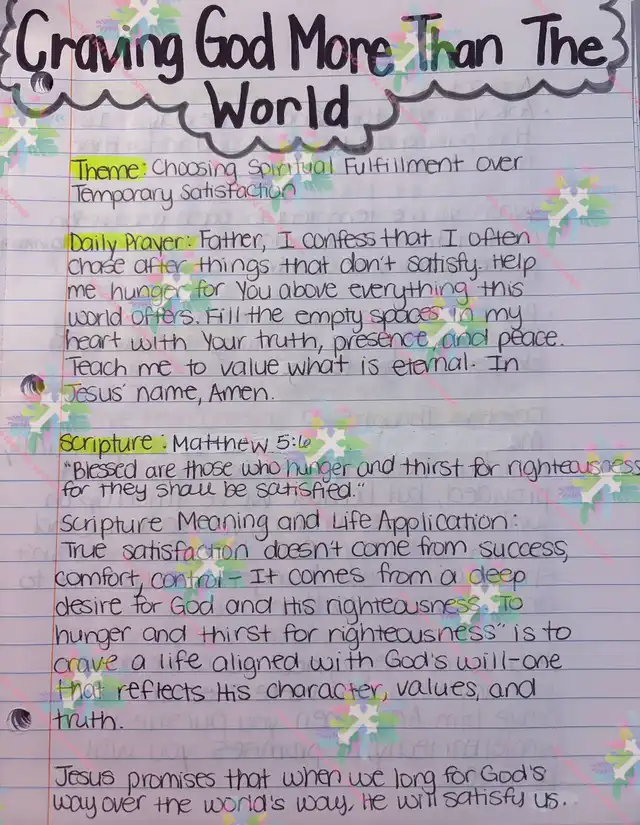 Craving God More Than The
World
Theme: Choosing Spiritual Fulfillment over
Temporary Satisfaction
Daily Prayer: Father, I confess that I often
chase after things that don't satisfy. Help
me hunger for You above everything this
world offers. Fill the empty spaces in my
heart with Your truth, presence, and peace.
Teach me to value what is eternal. In
Jesus' name, Amen.
Scripture: Matthew 5:6
"Blessed are those who hunger and thirst for righteousness
for they shall be satisfied."
Scripture Meaning and Life Application:
True satisfaction doesn't come from success,
comfort, control - It comes from a deep
desire for God and His righteousness. To
hunger and thirst for righteousness" is to
crave a life aligned with God's will-one
that reflects His character, values, and
truth.
Jesus promises that when we long for God's
way over the world's way, He will satisfy us.